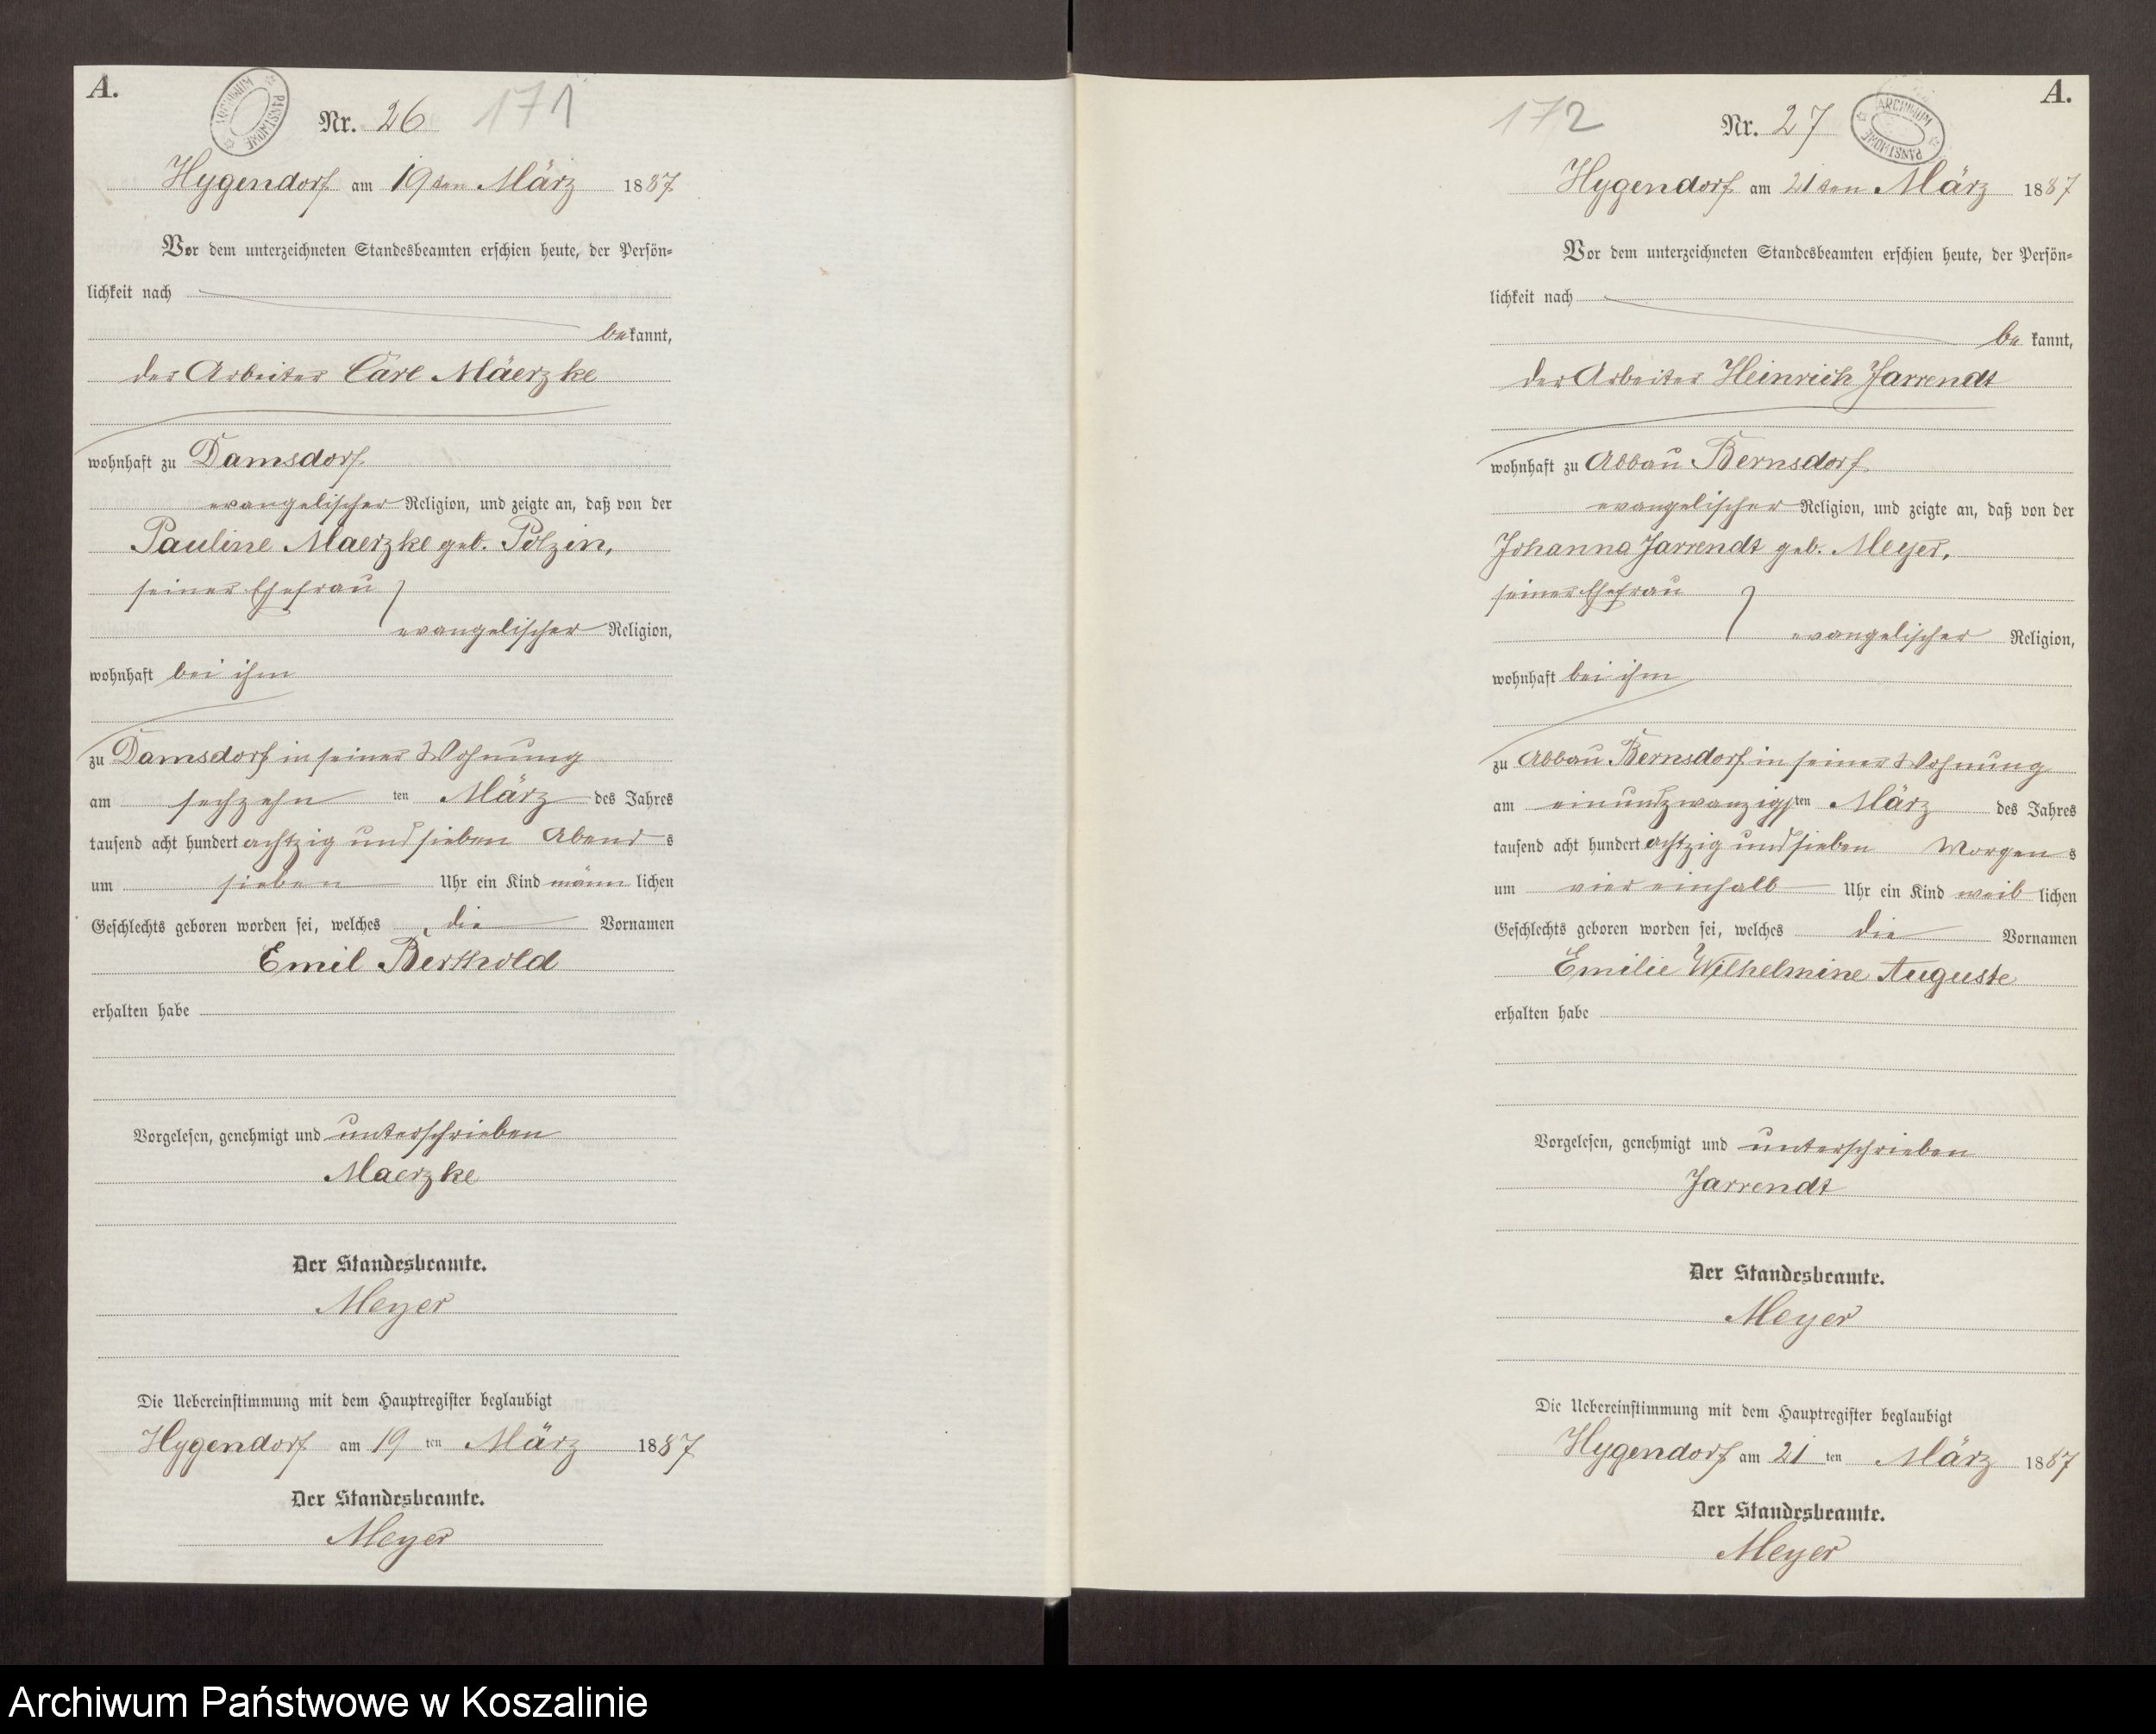 A.
Nr. 26 171
Hygendorf am 19ten März 1887
Vor dem unterzeichneten Standesbeamten erschien heute, der Persön-
lichkeit nach
bekannt,
der Arbeiter Carl Mäerzke
wohnhaft zu Damsdorf
evangelischer Religion, und zeigte an, daß von der
Pauline Maerzke geb. Polzin,
seiner Ehefrau
evangelischer Religion,
wohnhaft bei ihm
zu Damsdorf in seiner Wohnung
am sechzehn ten März des Jahres
tausend acht hundert achtzig und sieben Abend s
um sieben Uhr ein Kind männ lichen
Geschlechts geboren worden sei, welches die Vornamen
Emil Berthold
erhalten habe
Vorgelesen, genehmigt und unterschrieben
Maerzke
Der Standesbeamte.
Meyer
Die Uebereinstimmung mit dem Hauptregister beglaubigt
Hygendorf am 19 ten März 1887
Der Standesbeamte.
Meyer
A.
172 Nr. 27
ARCHIWUM PAŃSTWOWE
Hygendorf am 21ten März 1887
Vor dem unterzeichneten Standesbeamten erschien heute, der Persön-
lichkeit nach
be kannt,
der Arbeiter Heinrich Jarrendt
wohnhaft zu Abbau Bernsdorf
evangelischer Religion, und zeigte an, daß von der
Johanna Jarrendt geb. Meyer,
seiner Ehefrau
evangelischer Religion,
wohnhaft bei ihm
zu Abbau Bernsdorf in seiner Wohnung
am einundzwanzigsten März des Jahres
tausend acht hundert achtzig und sieben Morgen s
um vier einhalb Uhr ein Kind weib lichen
Geschlechts geboren worden sei, welches die Vornamen
Emilie Wilhelmine Auguste
erhalten habe
Vorgelesen, genehmigt und unterschrieben
Jarrendt
Der Standesbeamte.
Meyer
Die Uebereinstimmung mit dem Hauptregister beglaubigt
Hygendorf am 21 ten März 1887
Der Standesbeamte.
Meyer
Archiwum Państwowe w Koszalinie